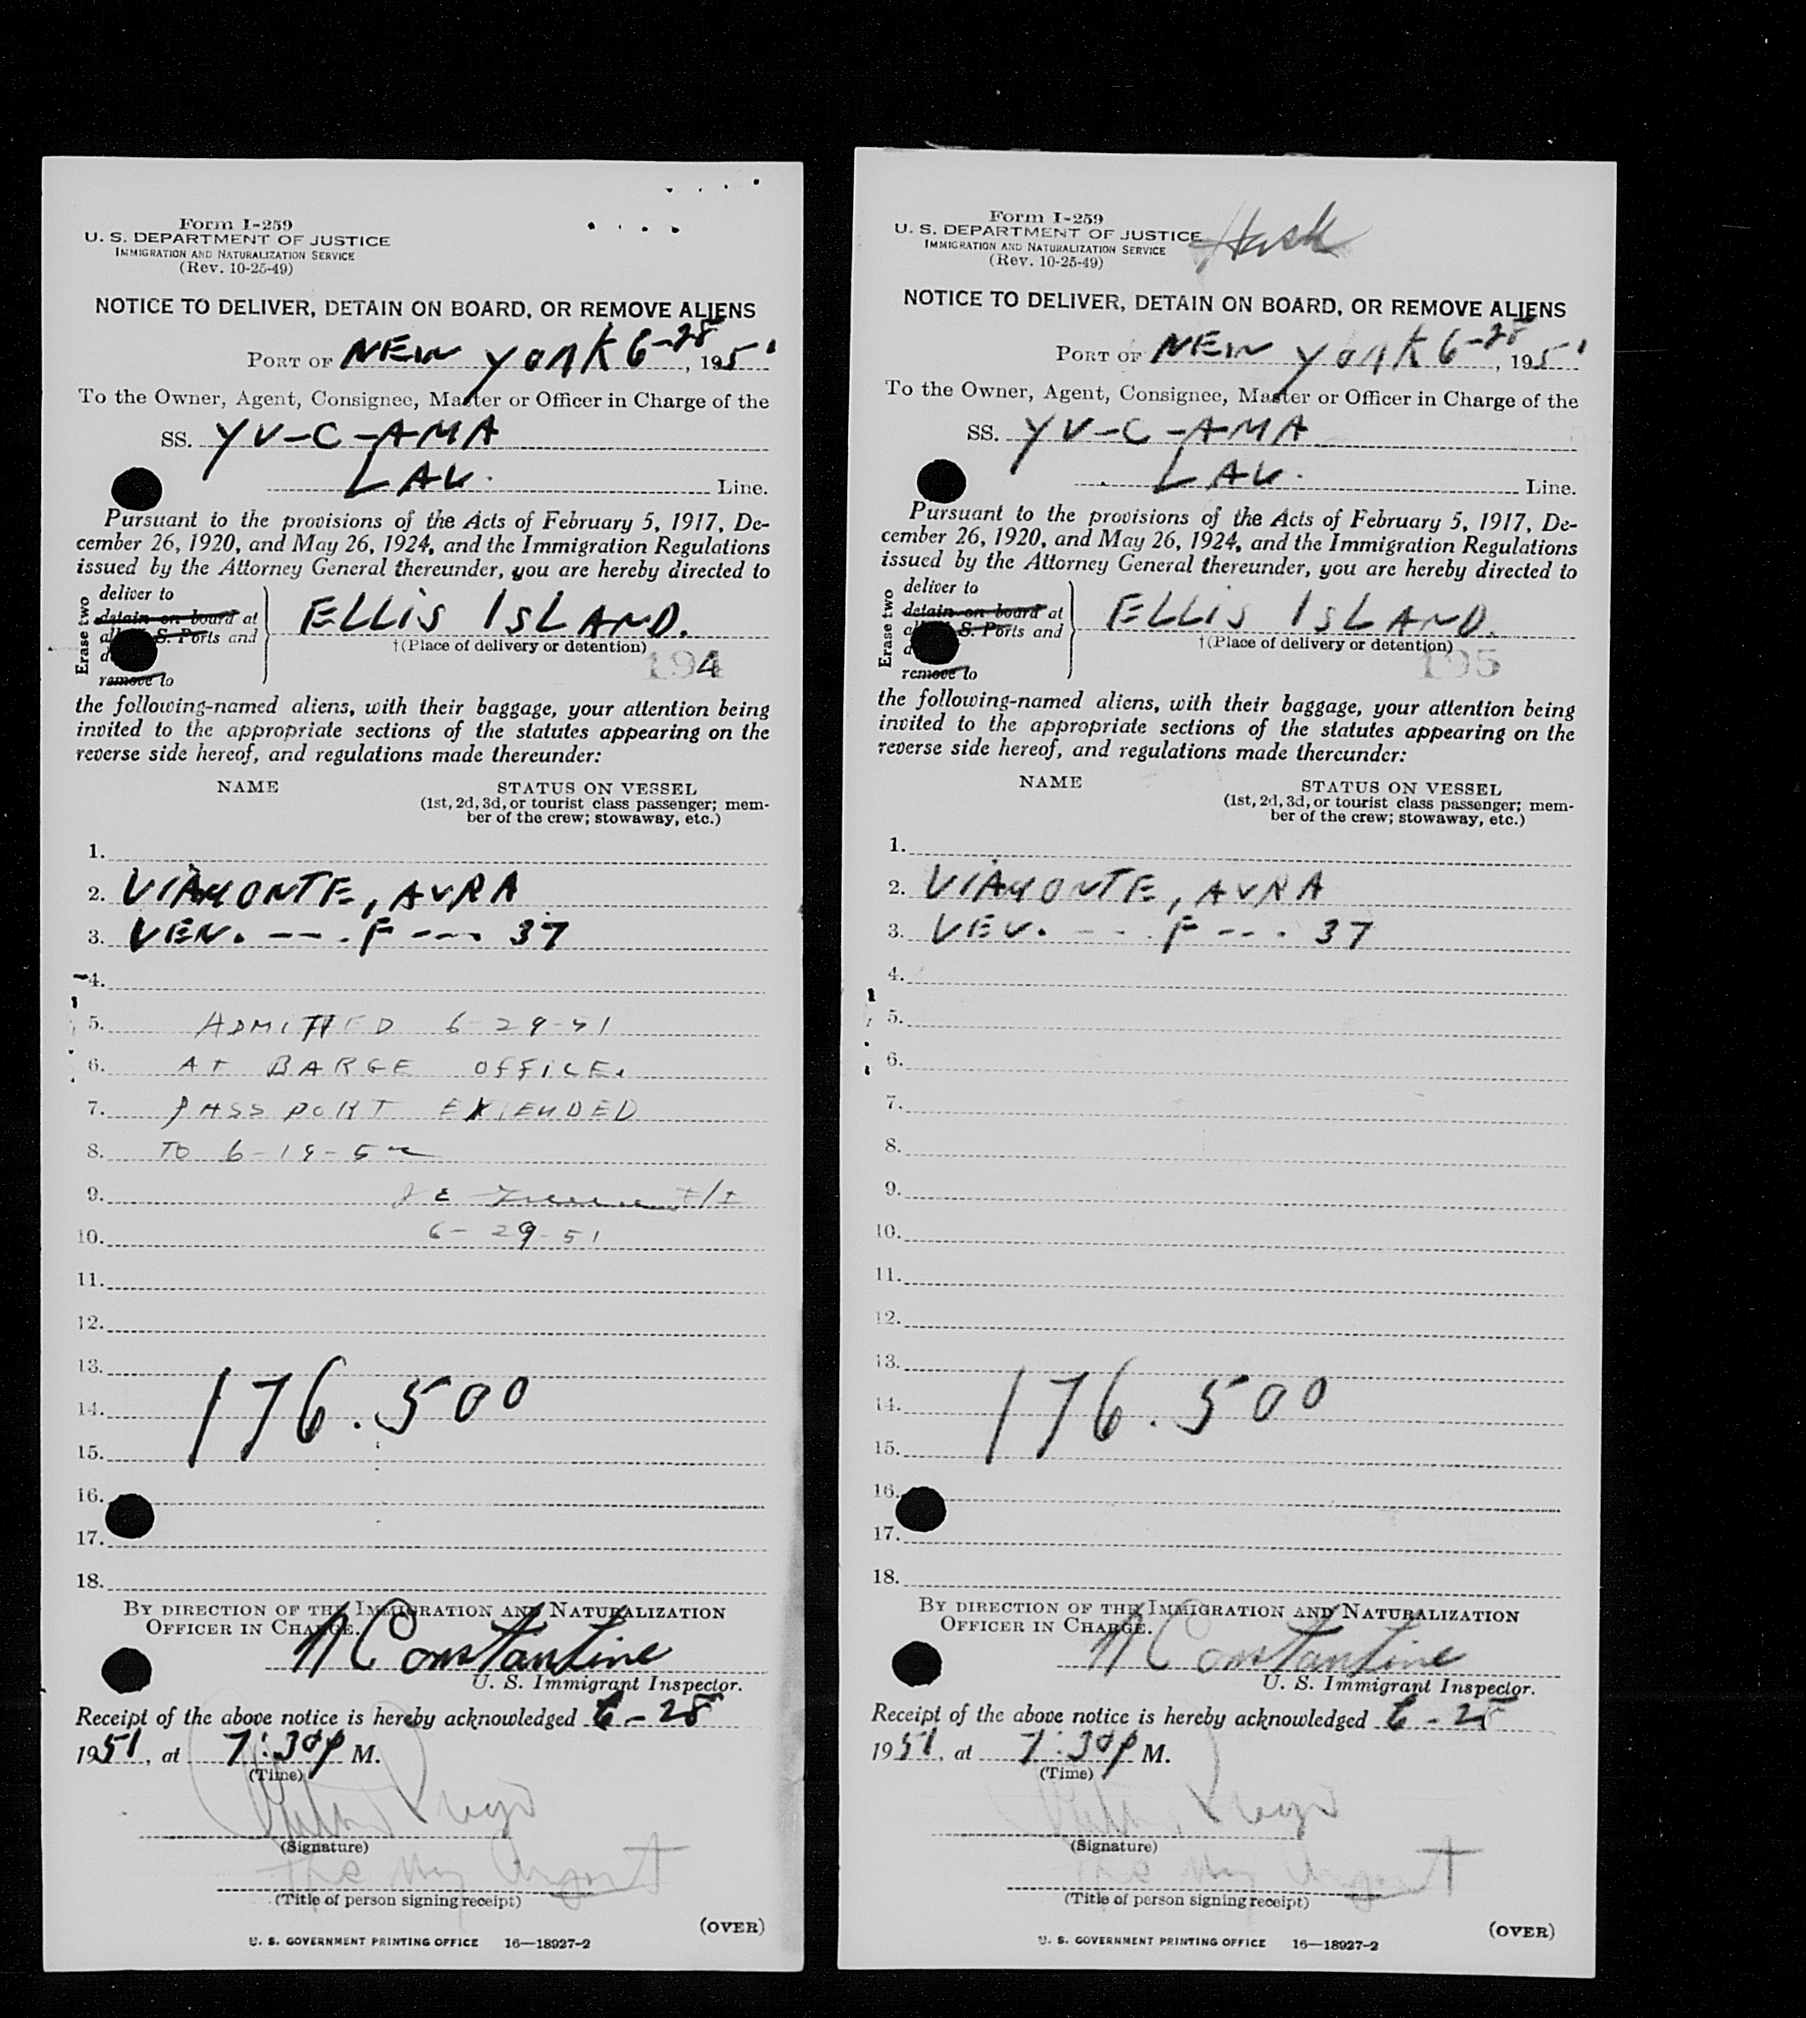 Form I-259
U. S. DEPARTMENT OF JUSTICE
IMMIGRATION AND NATURALIZATION SERVICE
(Rev. 10-25-49)
NOTICE TO DELIVER, DETAIN ON BOARD, OR REMOVE ALIENS
PORT OF NEW YORK 6-28, 1951
To the Owner, Agent, Consignee, Master or Officer in Charge of the
SS. YV-C-AMA
LAV. Line.
Pursuant to the provisions of the Acts of February 5, 1917, De-
cember 26, 1920, and May 26, 1924, and the Immigration Regulations
issued by the Attorney General thereunder, you are hereby directed to
Erase two
deliver to
detain on board at
S. Ports and
remove to
ELLIS ISLAND.
†(Place of delivery or detention)
194
the following-named aliens, with their baggage, your attention being
invited to the appropriate sections of the statutes appearing on the
reverse side hereof, and regulations made thereunder:
NAME
STATUS ON VESSEL
(1st, 2d, 3d, or tourist class passenger; mem-
ber of the crew; stowaway, etc.)
1.
2. VIAMONTE, AVRA
3. VEN. --- . F --- . 37
4.
5. ADMITTED 6-29-51
6. AT BARGE OFFICE.
7. PASSPORT EXTENDED
8. TO 6-19-52
9.
10. 6-29-51
11.
12.
13.
14. 176.500
15.
16.
17.
18.
BY DIRECTION OF THE IMMIGRATION AND NATURALIZATION
OFFICER IN CHARGE.
N Constantine
U. S. Immigrant Inspector.
Receipt of the above notice is hereby acknowledged 6-28
1951, at 7:30 P M.
(Time)
(Signature)
(Title of person signing receipt)
(OVER)
U. S. GOVERNMENT PRINTING OFFICE 16—18927-2
Form I-259
U. S. DEPARTMENT OF JUSTICE
IMMIGRATION AND NATURALIZATION SERVICE
(Rev. 10-25-49)
NOTICE TO DELIVER, DETAIN ON BOARD, OR REMOVE ALIENS
PORT OF NEW YORK 6-28, 1951
To the Owner, Agent, Consignee, Master or Officer in Charge of the
SS. YV-C-AMA
LAV. Line.
Pursuant to the provisions of the Acts of February 5, 1917, De-
cember 26, 1920, and May 26, 1924, and the Immigration Regulations
issued by the Attorney General thereunder, you are hereby directed to
Erase two
deliver to
detain on board at
S. Ports and
remove to
ELLIS ISLAND.
†(Place of delivery or detention)
195
the following-named aliens, with their baggage, your attention being
invited to the appropriate sections of the statutes appearing on the
reverse side hereof, and regulations made thereunder:
NAME
STATUS ON VESSEL
(1st, 2d, 3d, or tourist class passenger; mem-
ber of the crew; stowaway, etc.)
1.
2. VIAMONTE, AVRA
3. VEN. --- . F --- . 37
4.
5.
6.
7.
8.
9.
10.
11.
12.
13.
14. 176.500
15.
16.
17.
18.
BY DIRECTION OF THE IMMIGRATION AND NATURALIZATION
OFFICER IN CHARGE.
N Constantine
U. S. Immigrant Inspector.
Receipt of the above notice is hereby acknowledged 6-28
1951, at 7:30 P M.
(Time)
(Signature)
(Title of person signing receipt)
(OVER)
U. S. GOVERNMENT PRINTING OFFICE 16—18927-2